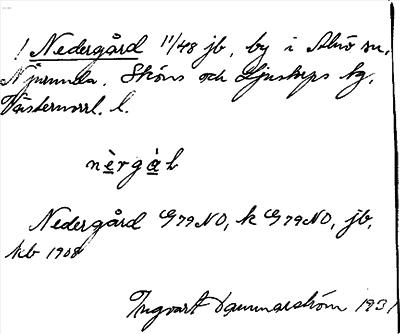 / Nedergård 11/48 jb, by i Alnö sn,
Njurunda, Sköns och Ljustorps tg,
Västernorrl. l.
nèrgàḷ
Nedergård G79NO, k G79NO, jb,
kb 1908
Ingvart Dammarström 1931